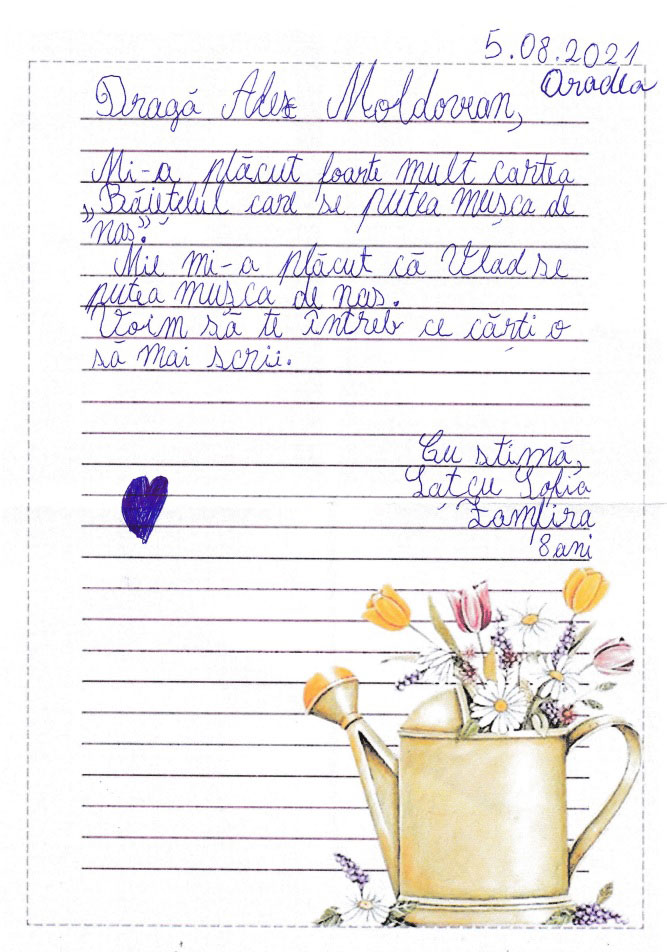 5.08.2021
Oradea
Dragă Alex Moldovan,
Mi-a plăcut foarte mult cartea
„Băiețelul care se putea mușca de
nas".
Mie mi-a plăcut că Vlad se
putea mușca de nas.
Voim să te întreb ce cărți o
să mai scrii.
Cu stimă,
Lațcu Sofia
Zamfira
8 ani